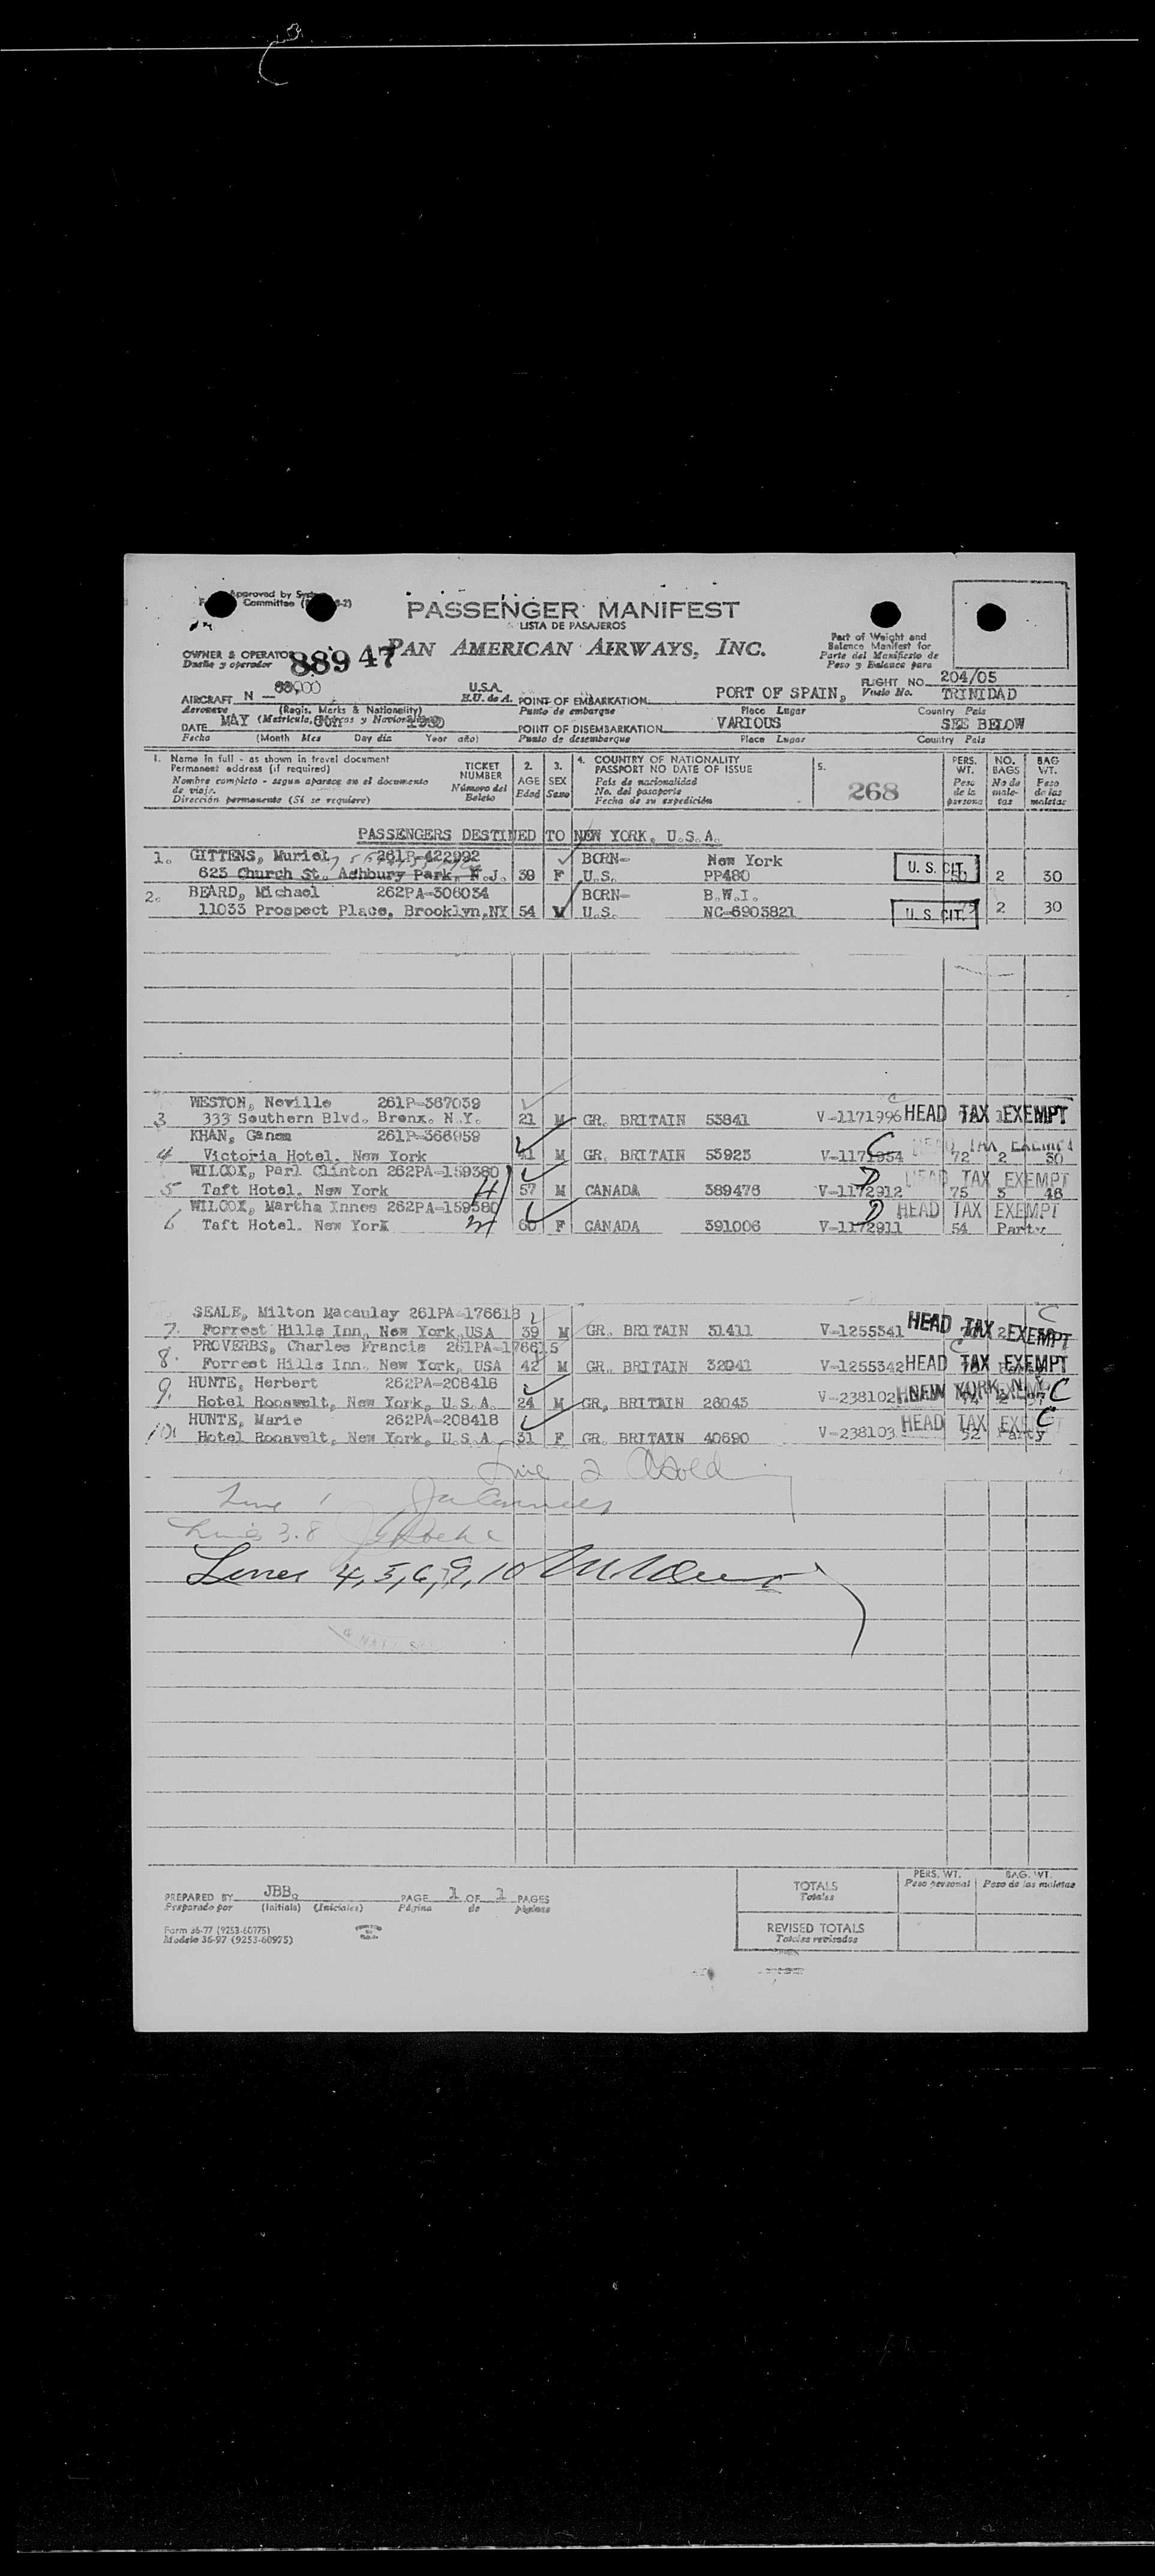 PASSENGER MANIFEST
LISTA DE PASAJEROS
PAN AMERICAN AIRWAYS, INC.
Approved by
Committee
OWNER & OPERATOR
Dueño y operador
88947
Part of Weight and
Balance Manifest for
Parte del Manifiesto de
Peso y Balance para
FLIGHT NO. 204/05
Vuelo No.
AIRCRAFT N
Aeronave
(Regis. Marks & Nationality)
U.S.A.
E.U. de A.
POINT OF EMBARKATION PORT OF SPAIN, TRINIDAD
Punto de embarque Place Lugar Country Pais
DATE MAY
Fecha (Month Mes Day dia Year año)
POINT OF DISEMBARKATION VARIOUS SEE BELOW
Punto de desembarque Place Lugar Country Pais
1. Name in full - as shown in travel document
Permanent address (if required)
Nombre completo - segun aparece en el documento
de viaje.
Dirección permanente (Si se requiere)
TICKET
NUMBER
Número del
Boleto
2.
AGE
Edad
3.
SEX
Sexo
4. COUNTRY OF NATIONALITY
PASSPORT NO DATE OF ISSUE
Pais de nacionalidad
No. del pasaporte
Fecha de su expedición
5.
268
PERS.
WT.
Peso
de la
persona
NO.
BAGS
No de
male-
tas
BAG
WT.
Peso
de las
maletas
PASSENGERS DESTINED TO NEW YORK, U.S.A.
1. GITTENS, Muriel 261P-422992 BORN- New York
623 Church St. Ashbury Park, N.J. 39 F U.S. PP480 U. S. CIT. 2 30
2. BEARD, Michael 262PA-306034 BORN- B.W.I.
11033 Prospect Place, Brooklyn,NY 54 U.S. NC-6903821 U. S. CIT. 2 30
WESTON, Neville 261P-367039
3 333 Southern Blvd. Bronx. N.Y. 21 M GR. BRITAIN 53841 V-1171996 HEAD TAX EXEMPT
KHAN, Ganem 261P-366959
4 Victoria Hotel. New York 41 M GR. BRITAIN 53923 V-1171954 C HEAD TAX EXEMPT 72 2 30
WILCOX, Parl Clinton 262PA-159380
5 Taft Hotel. New York 57 M CANADA 389476 V-1172912 D HEAD TAX EXEMPT 75 3 46
WILCOX, Martha Innes 262PA-159380
6 Taft Hotel. New York 60 F CANADA 391006 V-1172911 D HEAD TAX EXEMPT 54 Party
SEALE, Milton Macaulay 261PA-176613
7. Forrest Hills Inn, New York,USA 39 M GR. BRITAIN 31411 V-1255341 HEAD TAX EXEMPT C
PROVERBS, Charles Francis 261PA-176615
8. Forrest Hills Inn. New York, USA 42 M GR. BRITAIN 32941 V-1255342 HEAD TAX EXEMPT C
HUNTE, Herbert 262PA-208418
9. Hotel Roosvelt, New York, U.S.A. 24 M GR. BRITAIN 26043 V-238102 NEW YORK, N.Y. C
HUNTE, Marie 262PA-208418
10. Hotel Roosvelt, New York, U.S.A 31 F GR. BRITAIN 40690 V-238103 HEAD TAX C 52 Party
Line 2
Line 1
Lines 3.8
Lines 4, 5, 6, 9, 10
PREPARED BY JBB.
Preparado por (Initials) (Iniciales)
PAGE 1 OF 1 PAGES
Página de páginas
Form 36-77 (9253-60775)
Modelo 36-97 (9253-60975)
TOTALS
Totales
PERS. WT.
Peso personal
BAG. WT.
Peso de las maletas
REVISED TOTALS
Totales revisados